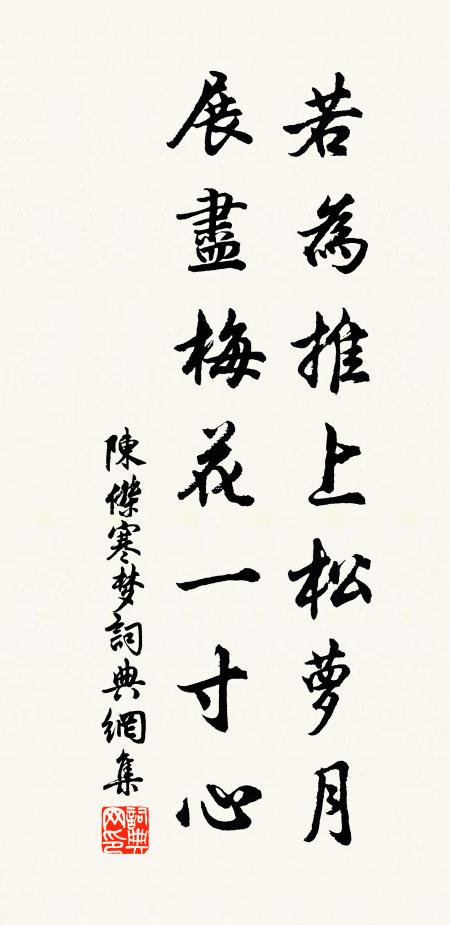 若為推上松萝月
展盡梅花一寸心
陳傑寒梦詞典網集
詞典
网印